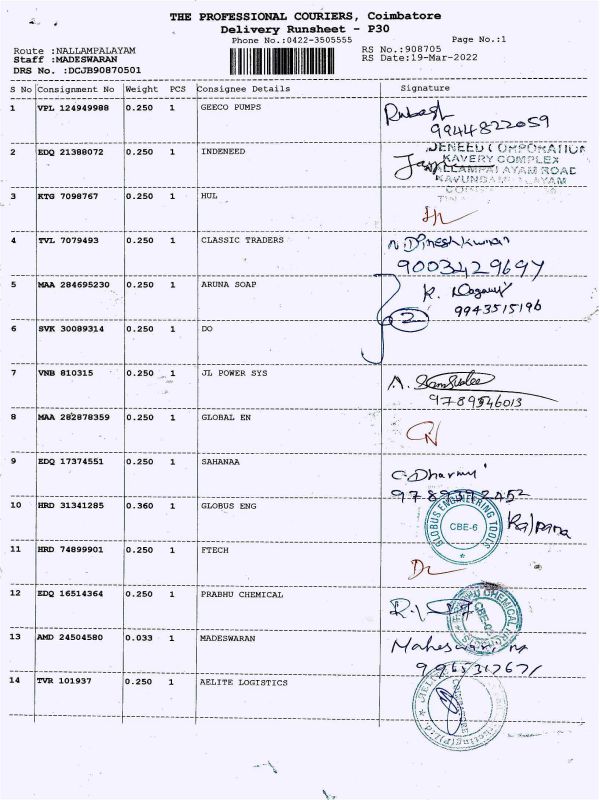 THE PROFESSIONAL COURIERS, Coimbatore
Delivery Runsheet - P30
Phone No.:0422-3505555 Page No.:1
Route :NALLAMPALAYAM RS No.:908705
Staff :MADESWARAN RS Date:19-Mar-2022
DRS No. :DCJB90870501
S No Consignment No Weight PCS Consignee Details Signature
1 VPL 124949988 0.250 1 GEECO PUMPS
9944822059
2 EDQ 21388072 0.250 1 INDENEED
KAVERY COMPLEX
NALLAMPALAYAM ROAD
KAVUNDAMPALAYAM
3 KTG 7098767 0.250 1 HUL
4 TVL 7079493 0.250 1 CLASSIC TRADERS N Dineshkumar
9003429694
5 MAA 284695230 0.250 1 ARUNA SOAP K.
9943515196
2
6 SVK 30089314 0.250 1 DO
7 VNB 810315 0.250 1 JL POWER SYS A.
9789546013
8 MAA 282878359 0.250 1 GLOBAL EN
9 EDQ 17374551 0.250 1 SAHANAA C. Dharmy
9789392452
10 HRD 31341285 0.360 1 GLOBUS ENG
GLOBUS ENGINEERING TOOLS
CBE-6
Kalpana
11 HRD 74899901 0.250 1 FTECH
12 EDQ 16514364 0.250 1 PRABHU CHEMICAL
13 AMD 24504580 0.033 1 MADESWARAN
14 TVR 101937 0.250 1 AELITE LOGISTICS